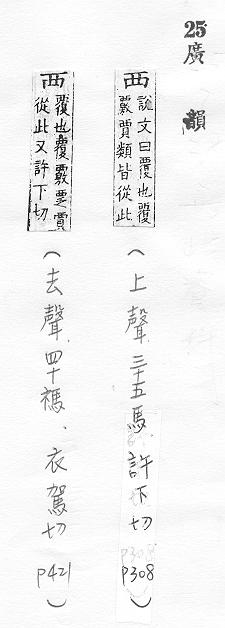 25 廣韻
襾 說文曰覆也覆
覈賈類皆從此
(上聲三十五馬 許下切 p308)
襾 覆也覆覈覂賈
從此又許下切
(去聲四十禡、衣駕切 p421)